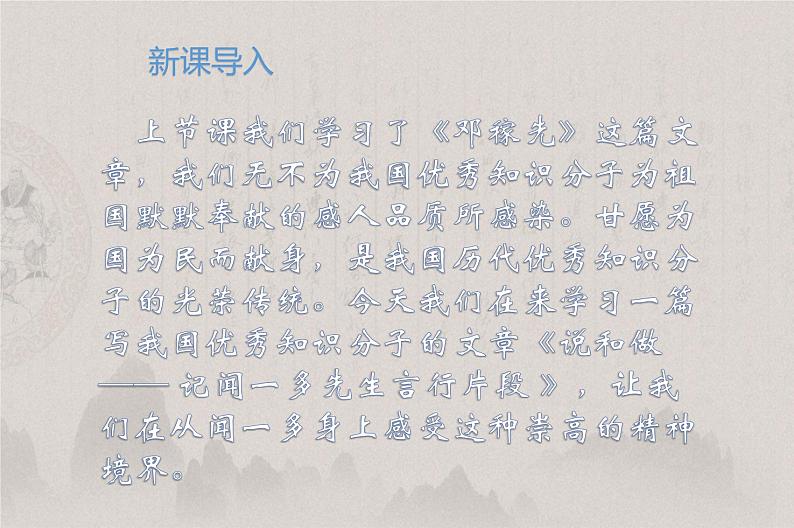 新课导入
上节课我们学习了《邓稼先》这篇文
章，我们无不为我国优秀知识分子为祖
国默默奉献的感人品质所感染。甘愿为
国为民而献身，是我国历代优秀知识分
子的光荣传统。今天我们在来学习一篇
写我国优秀知识分子的文章《说和做
——记闻一多先生言行片段》，让我
们在从闻一多身上感受这种崇高的精神
境界。